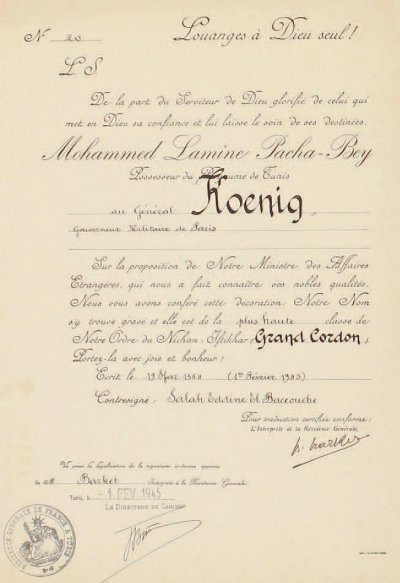 N° 20
Louanges à Dieu seul!
L.S
De la part du Serviteur de Dieu glorifié, de celui qui
met en Dieu sa confiance et lui laisse le soin de ses destinées,
Mohammed Lamine Pacha-Bey
Possesseur du Royaume de Tunis
au Général Koenig,
Gouverneur Militaire de Paris
Sur la proposition de Notre Ministre des Affaires
Etrangères, qui nous a fait connaître vos nobles qualités,
Nous vous avons conféré cette décoration, Notre Nom
s'y trouve gravé et elle est de la plus haute classe de
Notre Ordre du Nichan-Iftikhar (Grand Cordon);
Portez-la avec joie et bonheur!
Ecrit le 19 1364 (1er Février 1945)
Contresigné: Salah Eddine El Baccouche
Pour traduction certifiée conforme:
L'Interprète de la Résidence Générale,
Vu pour la légalisation de la signature ci-dessus apposée
de M. Barket Interprète à la Résidence Générale
Tunis, le -1 FEV 1945
LE DIRECTEUR DU CABINET
RESIDENCE GENERALE DE FRANCE A TUNIS